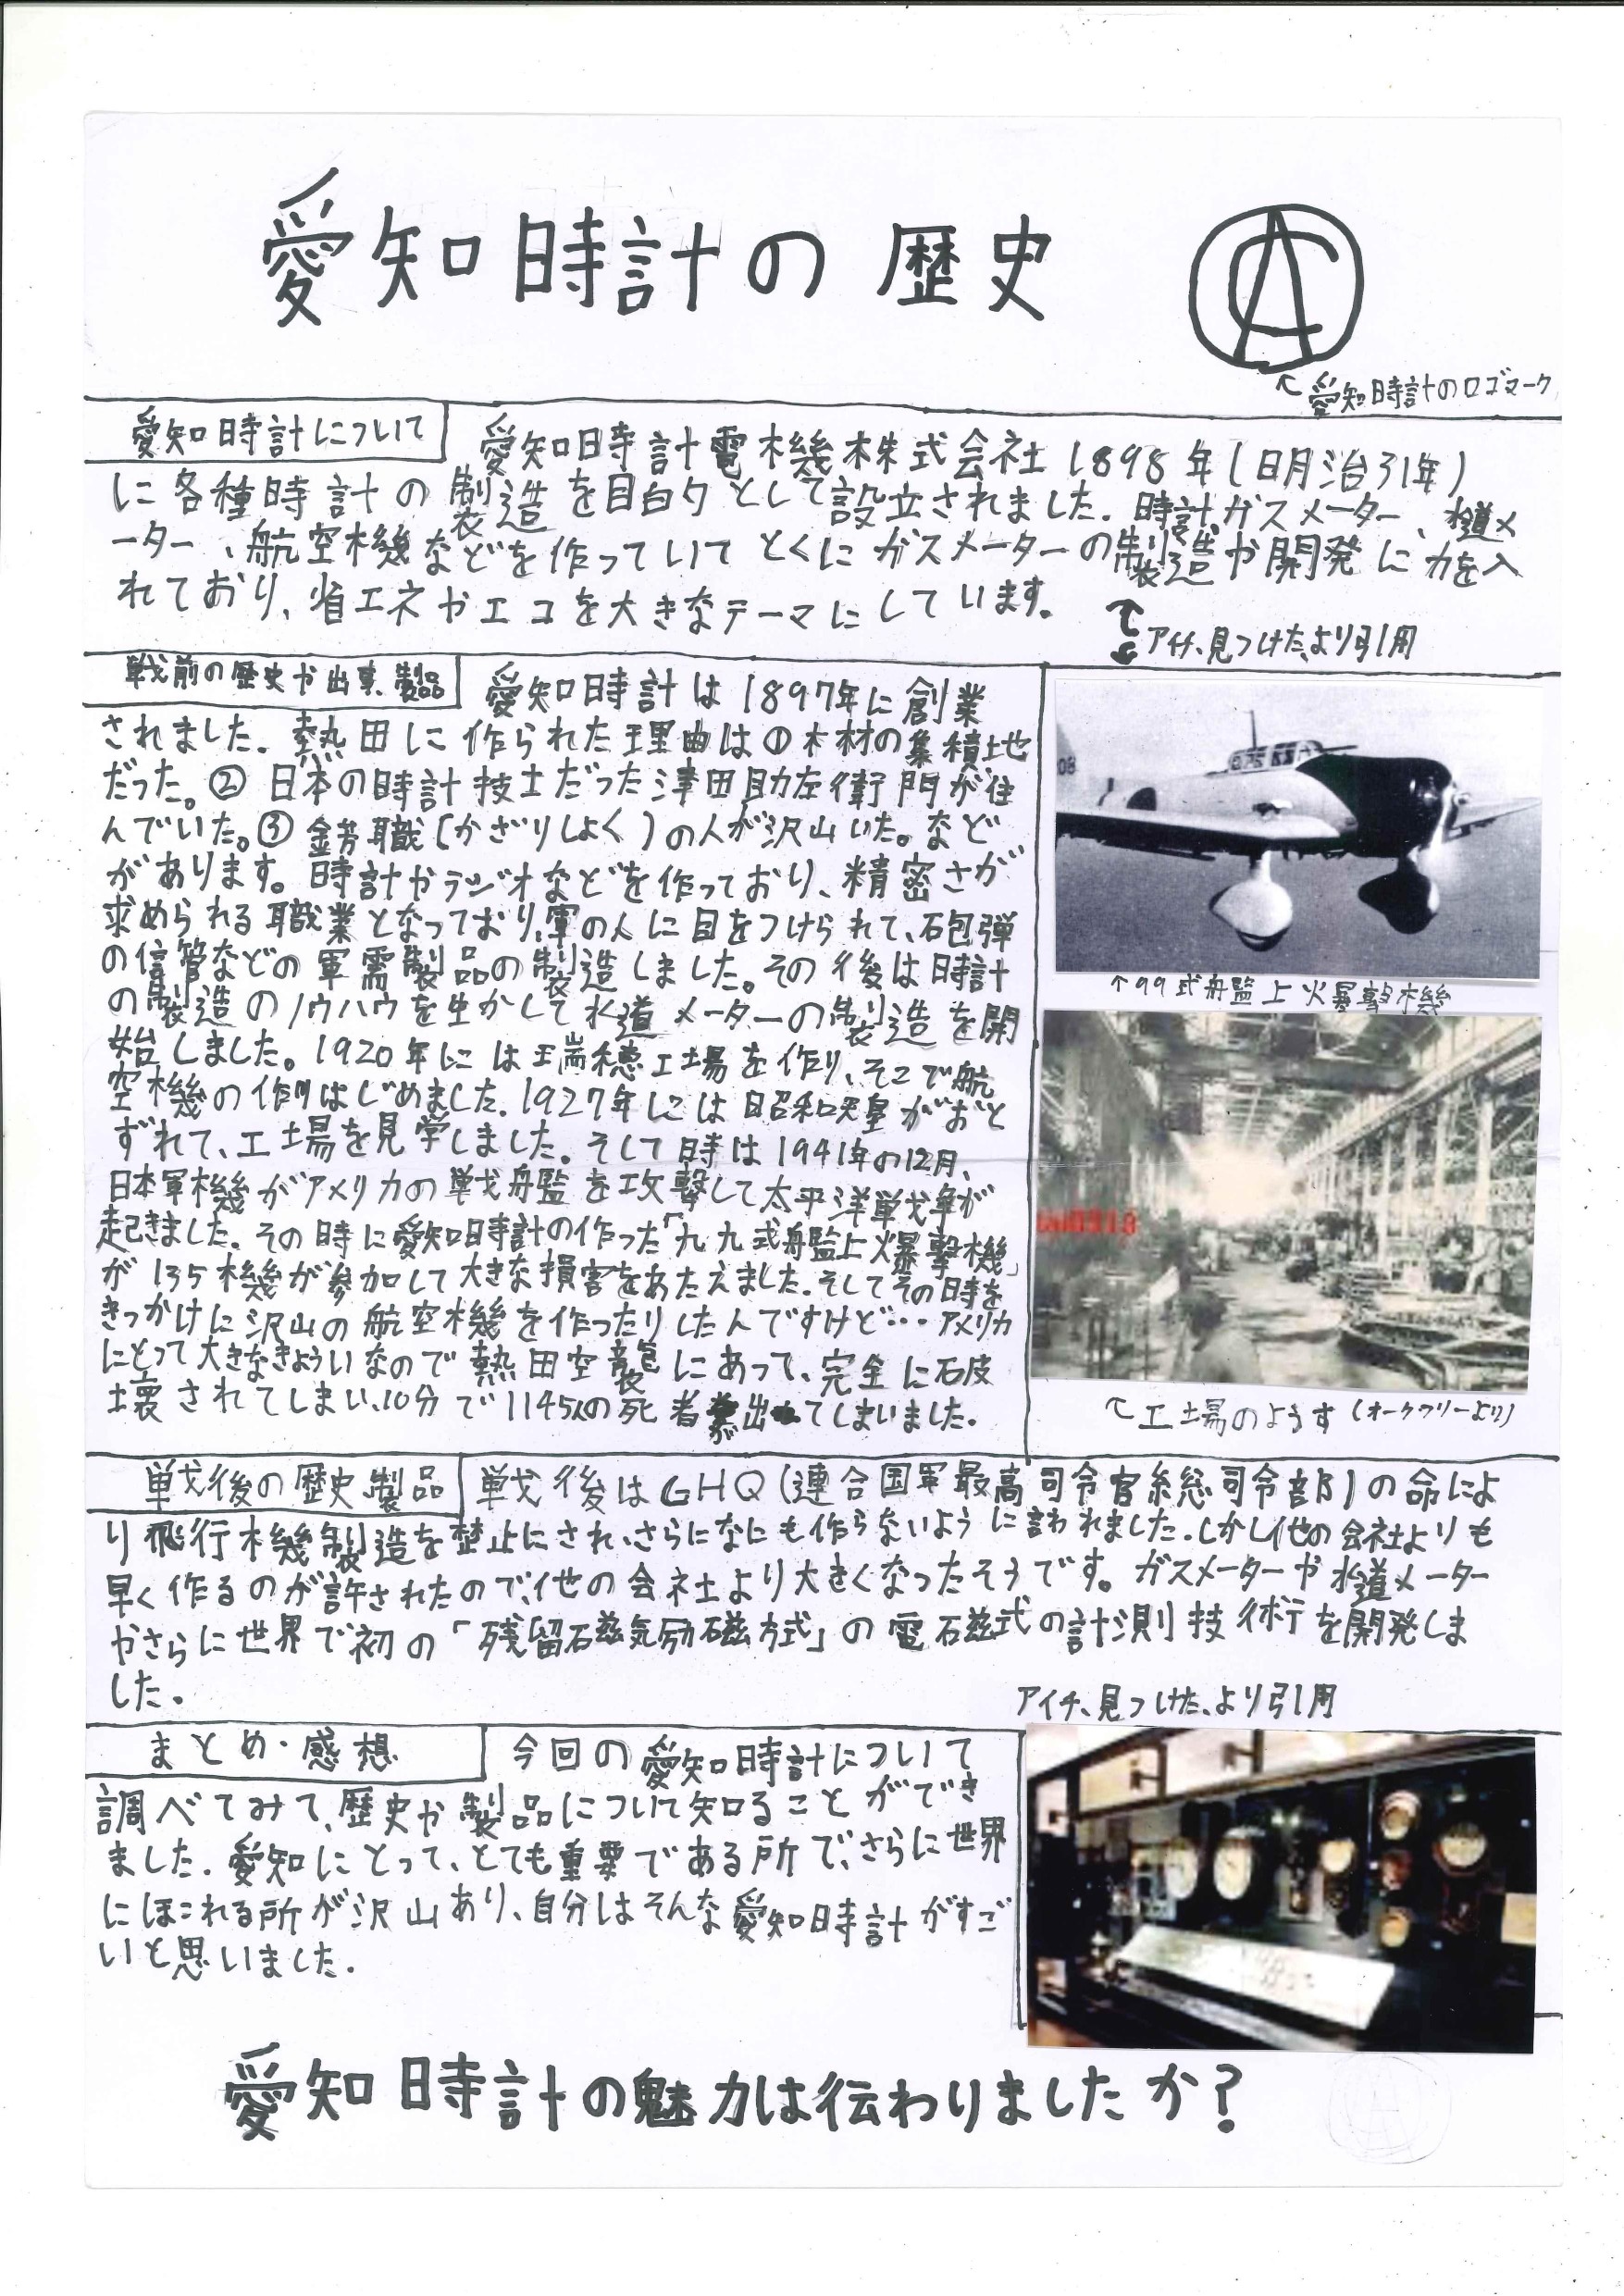 愛知時計の歴史
CA
↖愛知時計のロゴマーク
愛知時計について
愛知時計電機株式会社1898年(明治31年)
に各種時計の製造を目的として設立されました。時計、ガスメーター、水道メ
ーター、航空機などを作っていてとくにガスメーターの製造や開発に力を入
れており、省エネやエコを大きなテーマにしています。
アイチ、見つけた、より引用
戦前の歴史や出来事、製品
愛知時計は1897年に創業
されました。熱田に作られた理由は①木材の集積地
だった。②日本の時計技士だった津田助左衛門が住
んでいた。③錺職(かざりしょく)の人が沢山いた。など
があります。時計やラジオなどを作っており、精密さが
求められる職業となっており、軍の人に目をつけられて、砲弾
の信管などの軍需製品の製造しました。その後は時計
の製造のノウハウを生かして水道メーターの製造を開
始しました。1920年には瑞穂工場を作り、そこで航
空機の作りはじめました。1927年には昭和天皇がおと
ずれて、工場を見学しました。そして時は1941年の12月、
日本軍機がアメリカの戦艦を攻撃して太平洋戦争が
起きました。その時に愛知時計の作った「九九式艦上爆撃機」
が135機が参加して大きな損害をあたえました。そしてその時を
きっかけに沢山の航空機を作ったりしたんですけど…アメリカ
にとって大きなきょういなので熱田空襲にあって、完全に破
壊されてしまい、10分で1145人の死者が出てしまいました。
↑99式艦上爆撃機
↖工場のようす(オークフリーより)
戦後の歴史、製品
戦後はGHQ(連合国軍最高司令官総司令部)の命によ
り飛行機製造を禁止にされ、さらになにも作らないように言われました。しかし他の会社よりも
早く作るのが許されたので、他の会社より大きくなったそうです。ガスメーターや水道メーター
やさらに世界で初の「残留磁気励磁方式」の電磁式の計測技術を開発しま
した。
アイチ、見つけた、より引用
まとめ・感想
今回の愛知時計について
調べてみて、歴史や製品について知ることができ
ました。愛知にとって、とても重要である所で、さらに世界
にほこれる所が沢山あり、自分はそんな愛知時計がすご
いと思いました。
愛知時計の魅力は伝わりましたか?